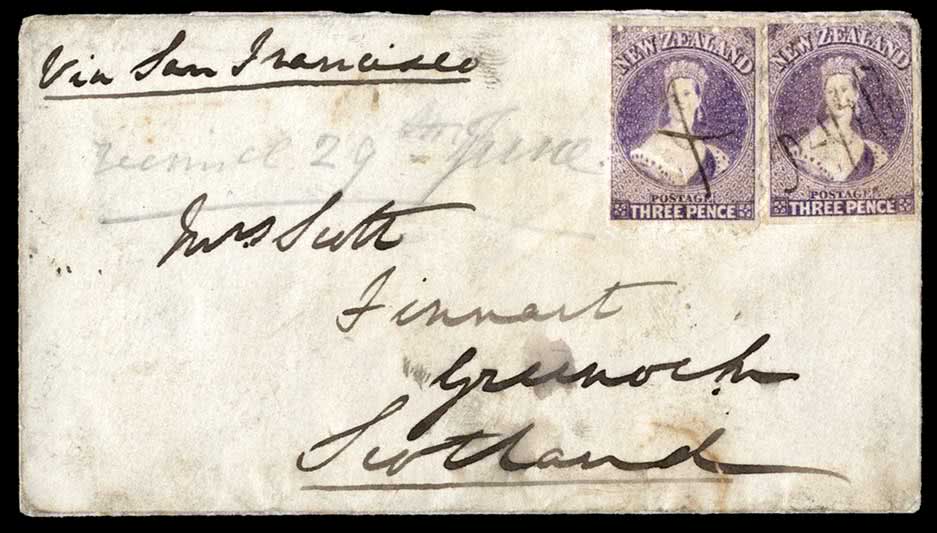 Via San Francisco
NEW ZEALAND
POSTAGE
THREE PENCE
NEW ZEALAND
POSTAGE
THREE PENCE
29 June.
Mrs Scott
Finnart
Greenock
Scotland